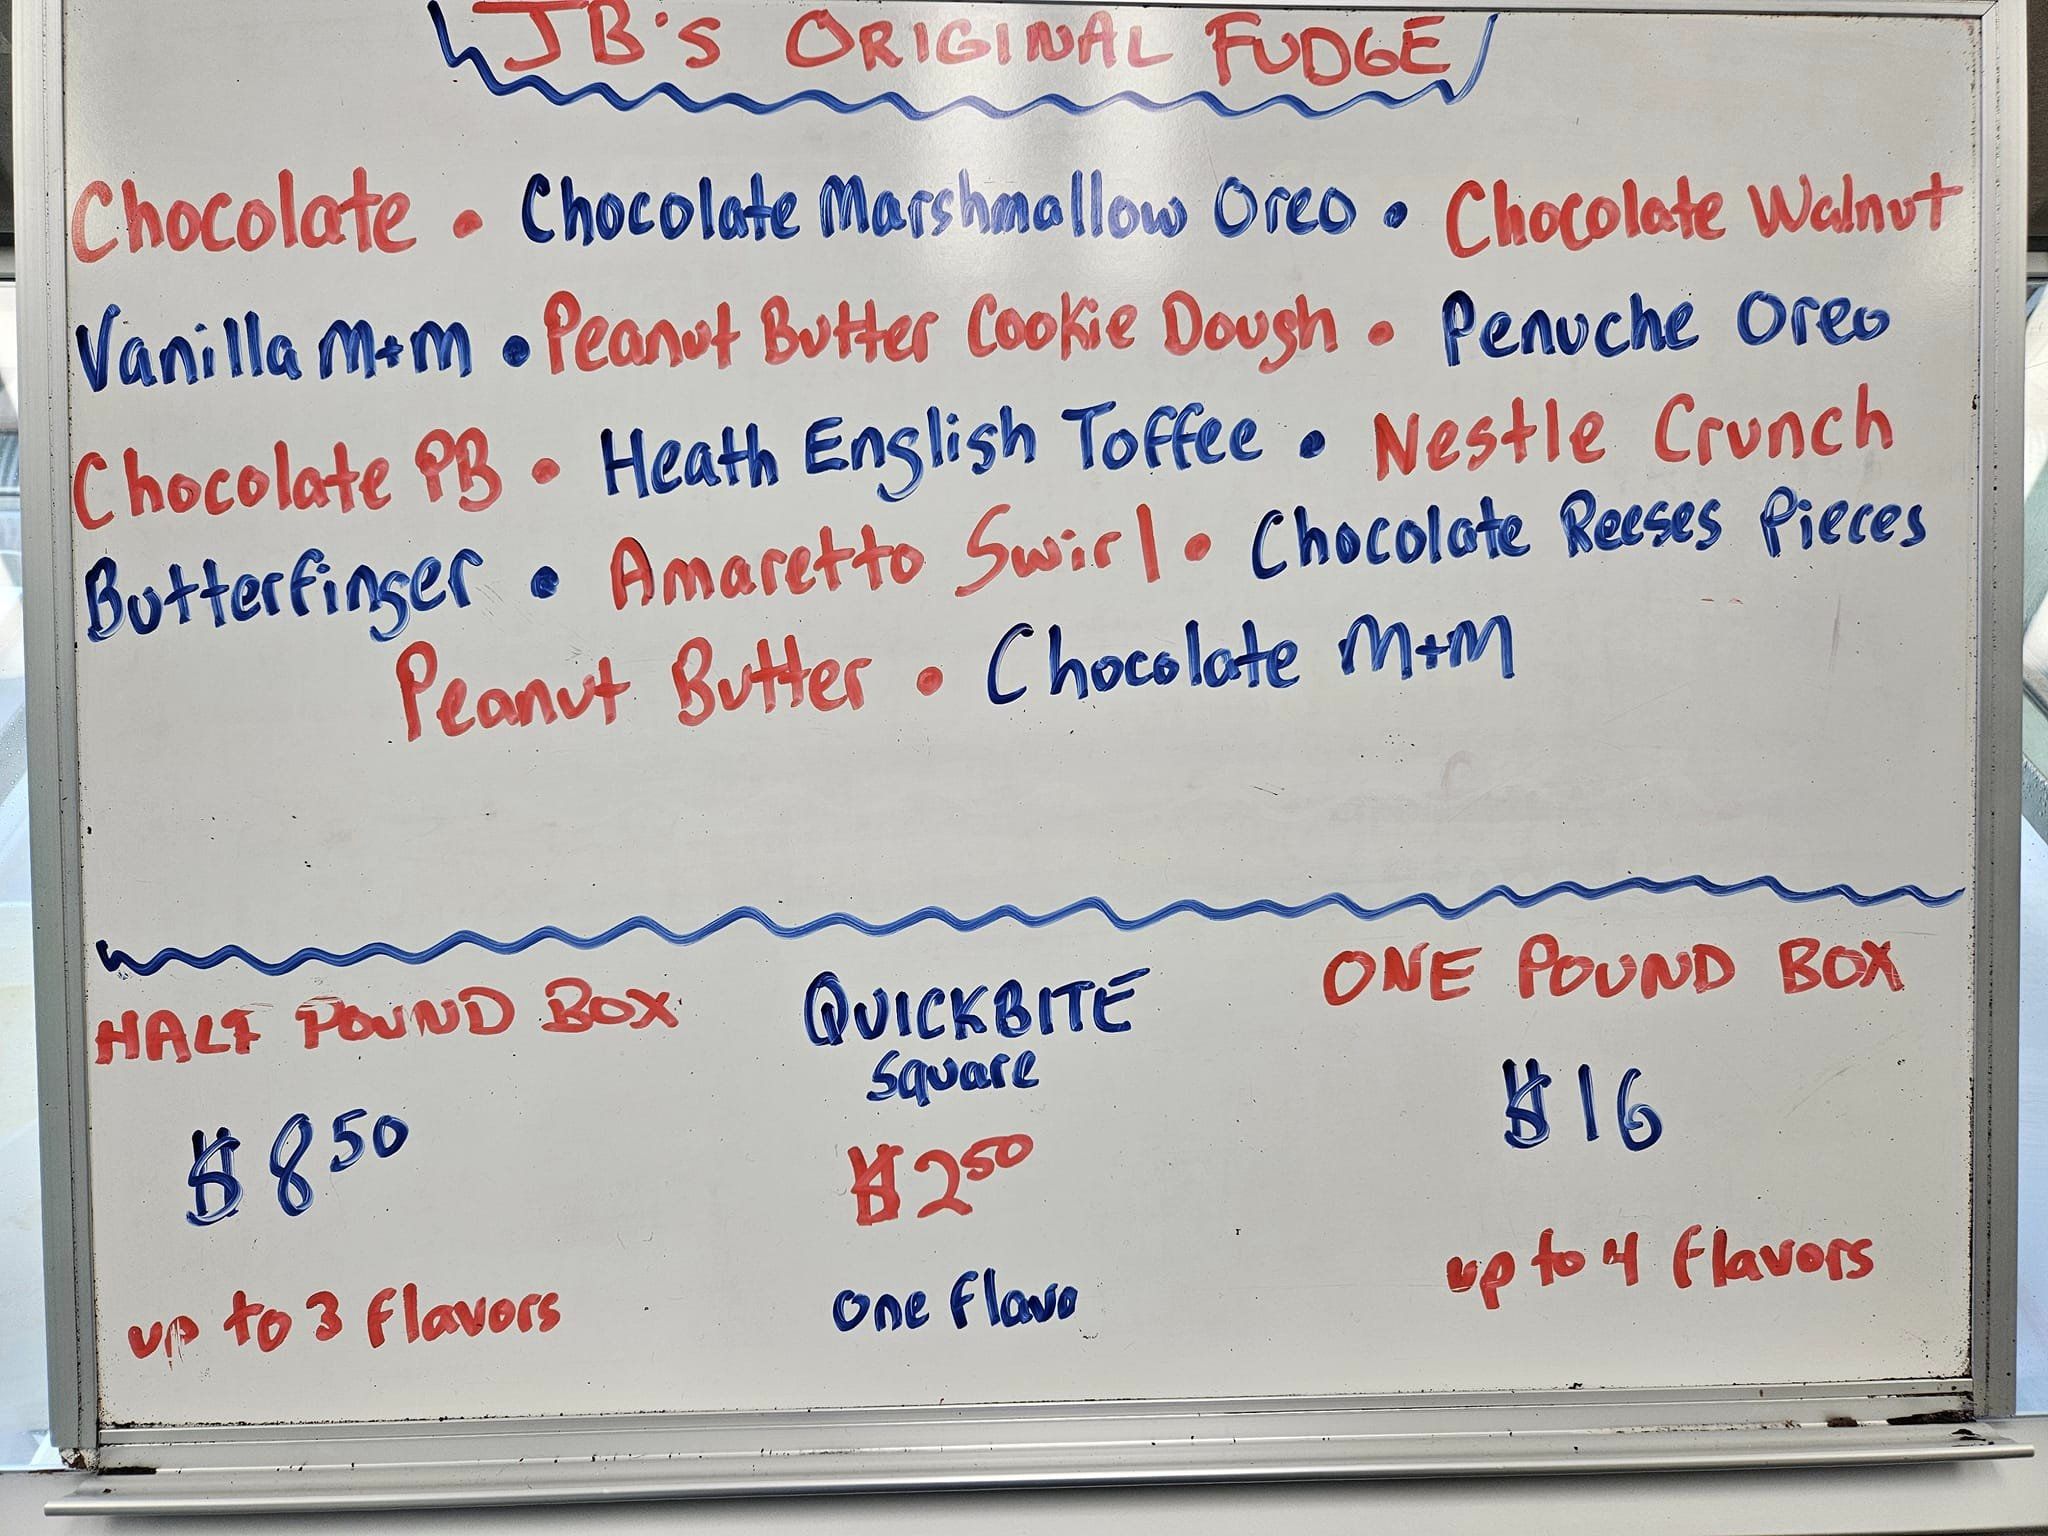 JB's ORIGINAL FUDGE
Chocolate • Chocolate Marshmallow Oreo • Chocolate Walnut
Vanilla M+M • Peanut Butter Cookie Dough • Penuche Oreo
Chocolate PB • Heath English Toffee • Nestle Crunch
Butterfinger • Amaretto Swirl • Chocolate Reeses Pieces
Peanut Butter • Chocolate M+M
HALF POUND BOX
$8 50
up to 3 flavors
QUICKBITE
Square
$2 50
one flavo
ONE POUND BOX
$16
up to 4 flavors